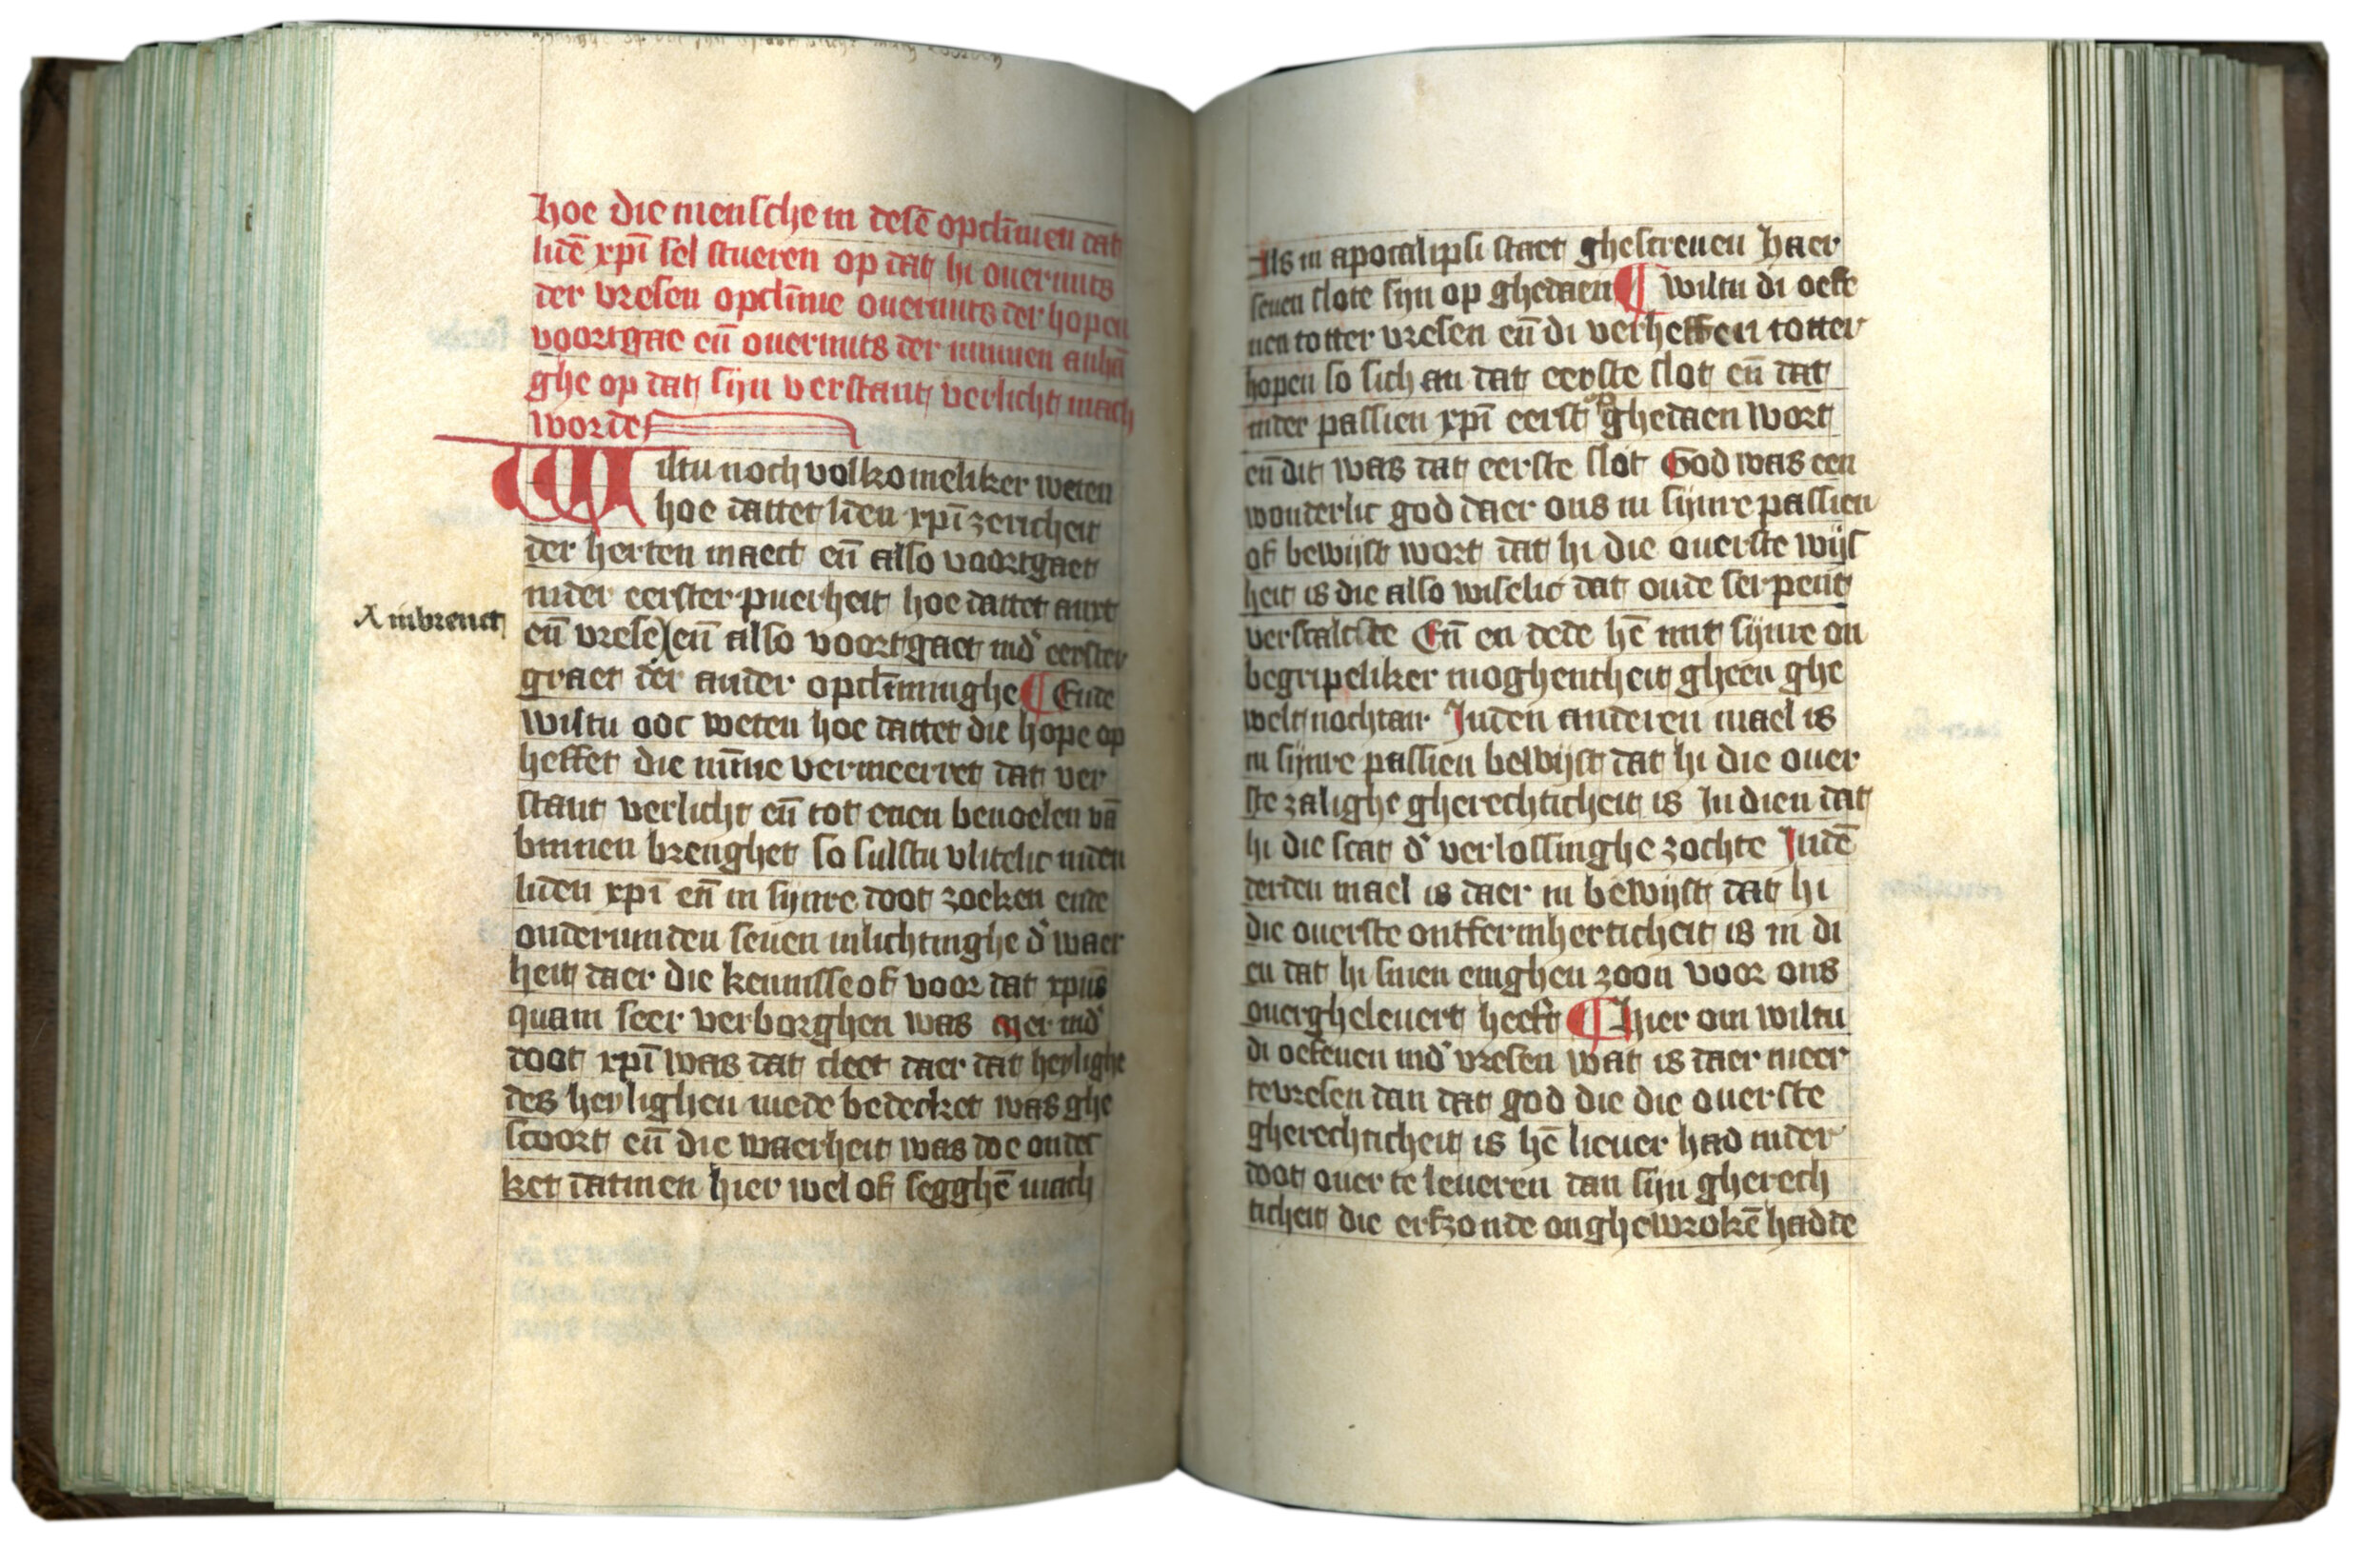 hoe die mensche in desē opclīmen dat
lidē xpī sel stueren op dat hi ouermits
der vresen opclīme ouermits der hopen
voortgae en̄ ouermits der minnen anhā
ghe op dat sijn verstant verlicht mach
worde
Wiltu noch volkomeliker weten
hoe dattet lidēn xpī zericheit
der herten maect en̄ also voortgaet
inder eerster puerheit hoe dattet anxt
Ambrenct
en̄ vrese en̄ also voortgaet indʼ eerster
graet der ander opclīminghe ¶ Ende
wiltu ooc weten hoe dattet die hope op
heffet die mīne vermeerret dat ver
stant verlicht en̄ tot enen beuoelen vā
binnen brenghet so sulstu vlitelic inden
liden xpī en̄ in sijnre doot zoeken ende
ondervinden seuen inlichtinghe dʼ waer
heit daer die kennisse of voor dat xpūs
quam seer verborghen was mer indʼ
doot xpī was dat cleet daer dat heylighe
des heylighen mede bedecket was ghe
scoort en̄ die waerheit was doe ontdec
ket datmen hier wel of segghē mach
Als in apocalipsi staet ghescreuen haer
seuen slote sijn op ghedaen ¶ wiltu di oeffe
nen totter vresen en̄ di verheffen totter
hopen so sich an dat eerste slot en̄ dat
inder passien xpī eerst op ghedaen wort
en̄ dit was dat eerste slot God was een
wonderlic god daer ons in sijnre passien
of bewijst wort dat hi die ouerste wijs
heit is die also wiselic dat oude serpent
verscalcte En̄ en dede hē mit sijnre on
begripeliker moghentheit gheen ghe
welt nochtan Inden anderen mael is
in sijnre passien bewijst dat hi die ouer
ste zalighe gherechticheit is In dien dat
hi die scat dʼ verlossinghe zochte Indē
derden mael is daer in bewijst dat hi
die ouerste ontfermherticheit is in di
en dat hi sinen enighen zoon voor ons
ouergheleuert heeft ¶ hier om wiltu
di oefenen indʼ vresen wat is daer meer
te vresen dan dat god die die ouerste
gherechticheit is hē lieuer had inder
doot ouer te leueren dan sijn gherech
ticheit die erfzonde onghewrokē hadde